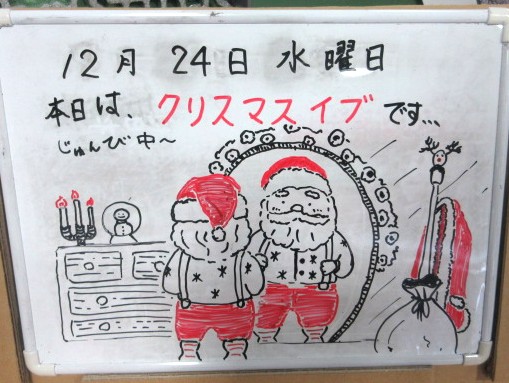 12月 24日 水曜日
本日は、クリスマスイブです...
じゅんび中〜